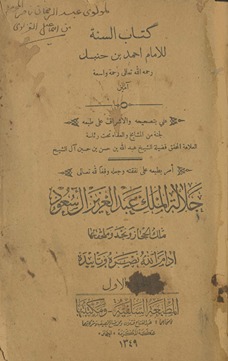 كتاب السنة
للإمام احمد بن حنبل
رحمه الله تعالى رحمة واسعة
آمين
عني بتصحيحه والاشراف على طبعه
لجنة من المشايخ والعلماء تحت رئاسة
العلامة المحقق فضيلة الشيخ عبد الله بن حسن بن حسين آل الشيخ
أمر بطبعه على نفقته وجعله وقفا لله تعالى
جلالة الملك عبد العزيز آل سعود
ملك الحجاز ونجد وملحقاتها
ادام الله نصره وتأييده
الاول
المطبعة السلفية ومكتبتها
١٣٤٩